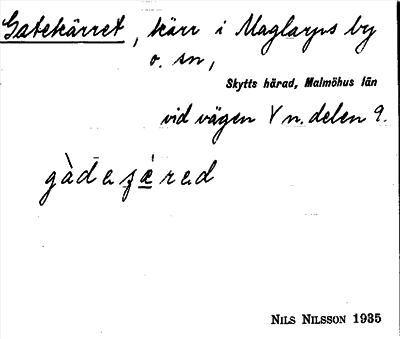 Gatekärret, kärr i Maglarps by
o. sn,
Skytts härad, Malmöhus län
vid vägen V n. delen 9.
NILS NILSSON 1935